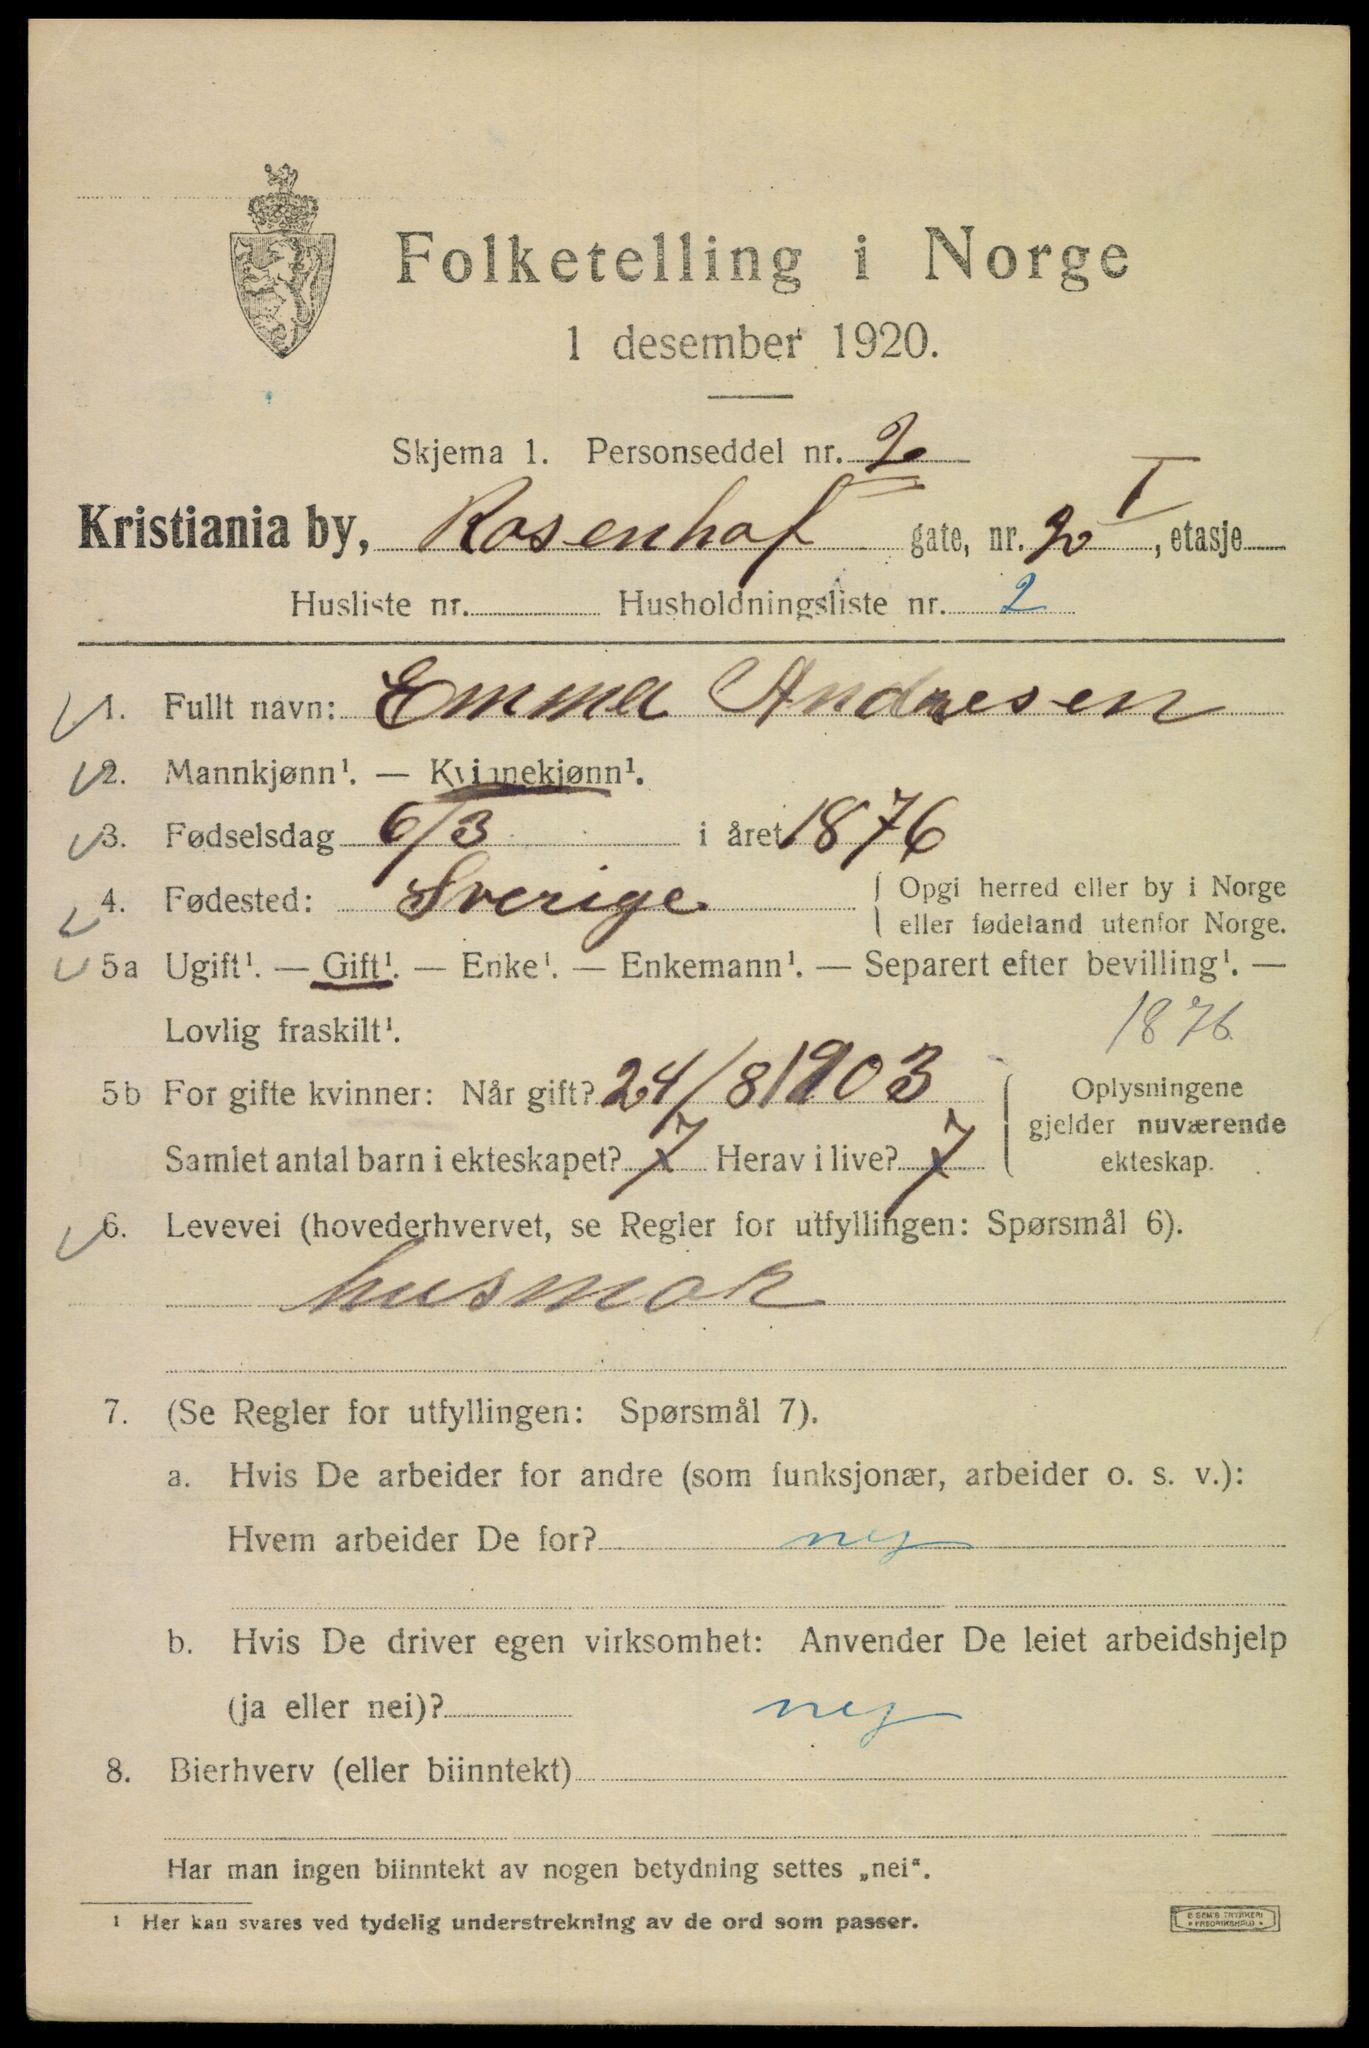 Folketelling i Norge
1 desember 1920.
Skjema 1. Personseddel nr. 2
Kristiania by, Rosenhof gate, nr. 20 I, etasje
Husliste nr. Husholdningsliste nr. 2
1. Fullt navn: Emma Andresen
2. Mannkjønn¹. — Kvinnekjønn¹.
3. Fødselsdag 6/3 i året 1876
4. Fødested: Sverige Opgi herred eller by i Norge
eller fødeland utenfor Norge.
5a Ugift¹. — Gift¹. — Enke¹. — Enkemann¹. — Separert efter bevilling¹. —
Lovlig fraskilt¹. 1876
5b For gifte kvinner: Når gift? 24/8 1903 Oplysningene
gjelder nuværende
Samlet antal barn i ekteskapet? 7 Herav i live? 7 ekteskap.
6. Levevei (hovederhvervet, se Regler for utfyllingen: Spørsmål 6).
husmor
7. (Se Regler for utfyllingen: Spørsmål 7).
a. Hvis De arbeider for andre (som funksjonær, arbeider o. s. v.):
Hvem arbeider De for? nej
b. Hvis De driver egen virksomhet: Anvender De leiet arbeidshjelp
(ja eller nei)? nej
8. Bierhverv (eller biinntekt)
Har man ingen biinntekt av nogen betydning settes „nei“.
¹ Her kan svares ved tydelig understrekning av de ord som passer.
E SEM'S TRYKKERI
FREDRIKSHALD